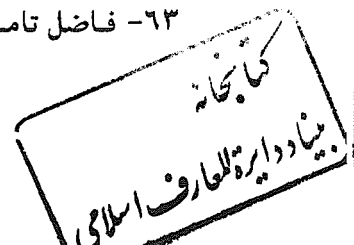 ٦٣- فاضل تامـ
کتابخانه
بنیاد دایرة المعارف اسلامی